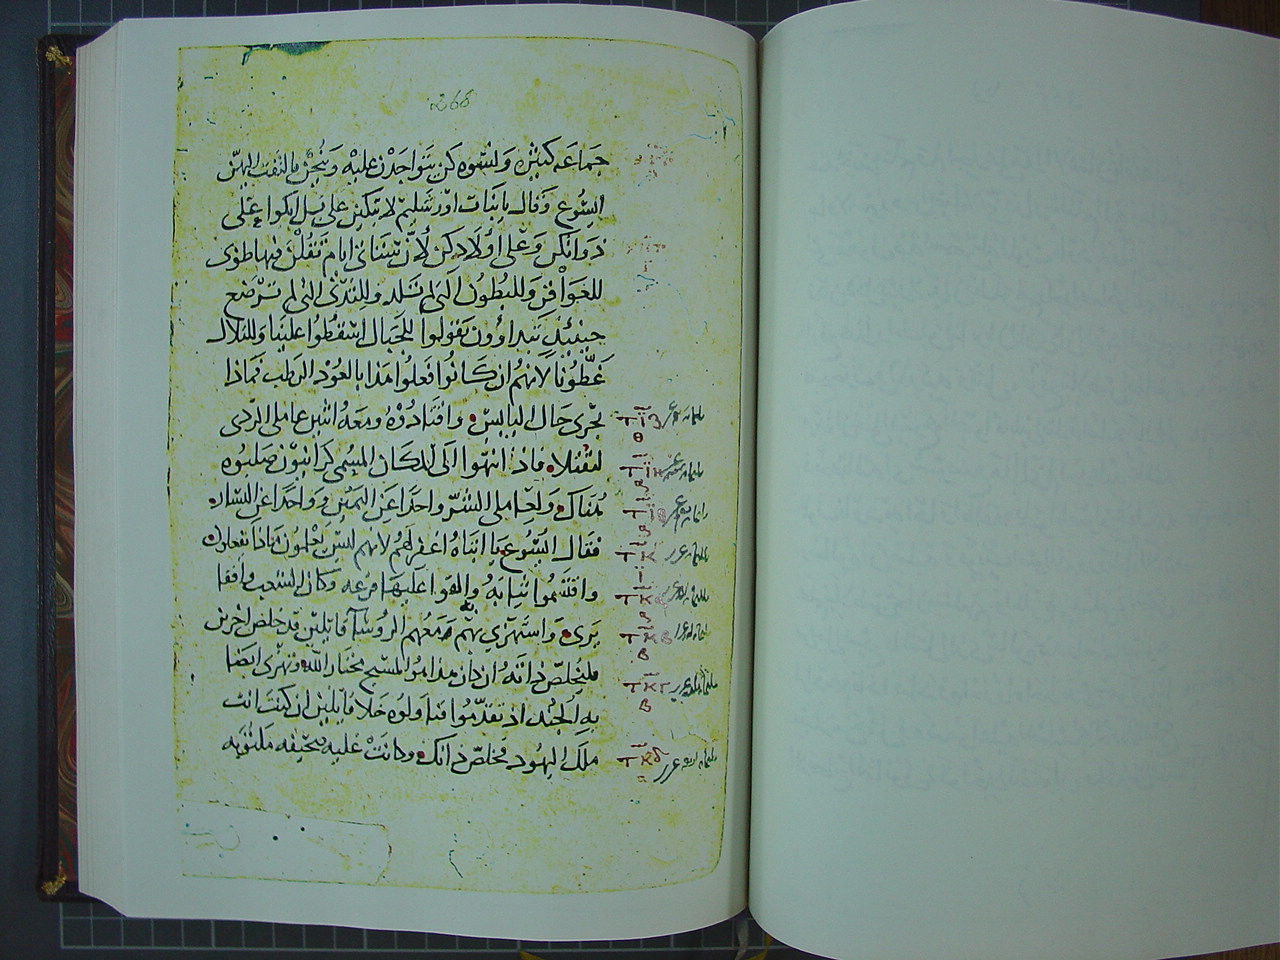 266
جماعه كثيره ونسوه كن يتواجدن عليه وينحن فالتفت اليهن
ايسوع وقال يا بنات اورشليم لا تبكين علي بل ابكوا على
ذواتكن وعلى اولادكن لان ستاتي ايام تقلن فيها طوبى
للعواقر وللبطون التي لم تلد وللثدي التي لم ترضع
حينيئذ تبداوون تقولوا للجبال اسقطوا علينا وللتلال
غطونا لانهم ان كانوا فعلوا هذا بالعود الرطب فماذا
تجري حال اليابس واقتادوه ومعه اثنين عاملي الردى
لتقتلا فاذ انتهوا الى المكان المسمى كرانيون صلبوه
هناك ولعاملي الشر واحدا عن اليمين وواحدا عن اليسار
فقال ايسوع يا ابتاه اغفر لهم لانهم ليس يعلمون ماذا يفعلون
واقتسموا ثيابه والقوا عليها قرعه وكان الشعب واقفا
يرى واستهزي بهم معهم الروسا قائلين قد خلص اخرين
فليخلص ذاته ان كان هذا هو المسيح مختار الله وتهزى ايضا
به الجند اذ تقدموا قباولوه خلا قايلين ان كنت انت
ملك اليهود فخلص ذاتك وكانت عليه صحيفه مكتوبه